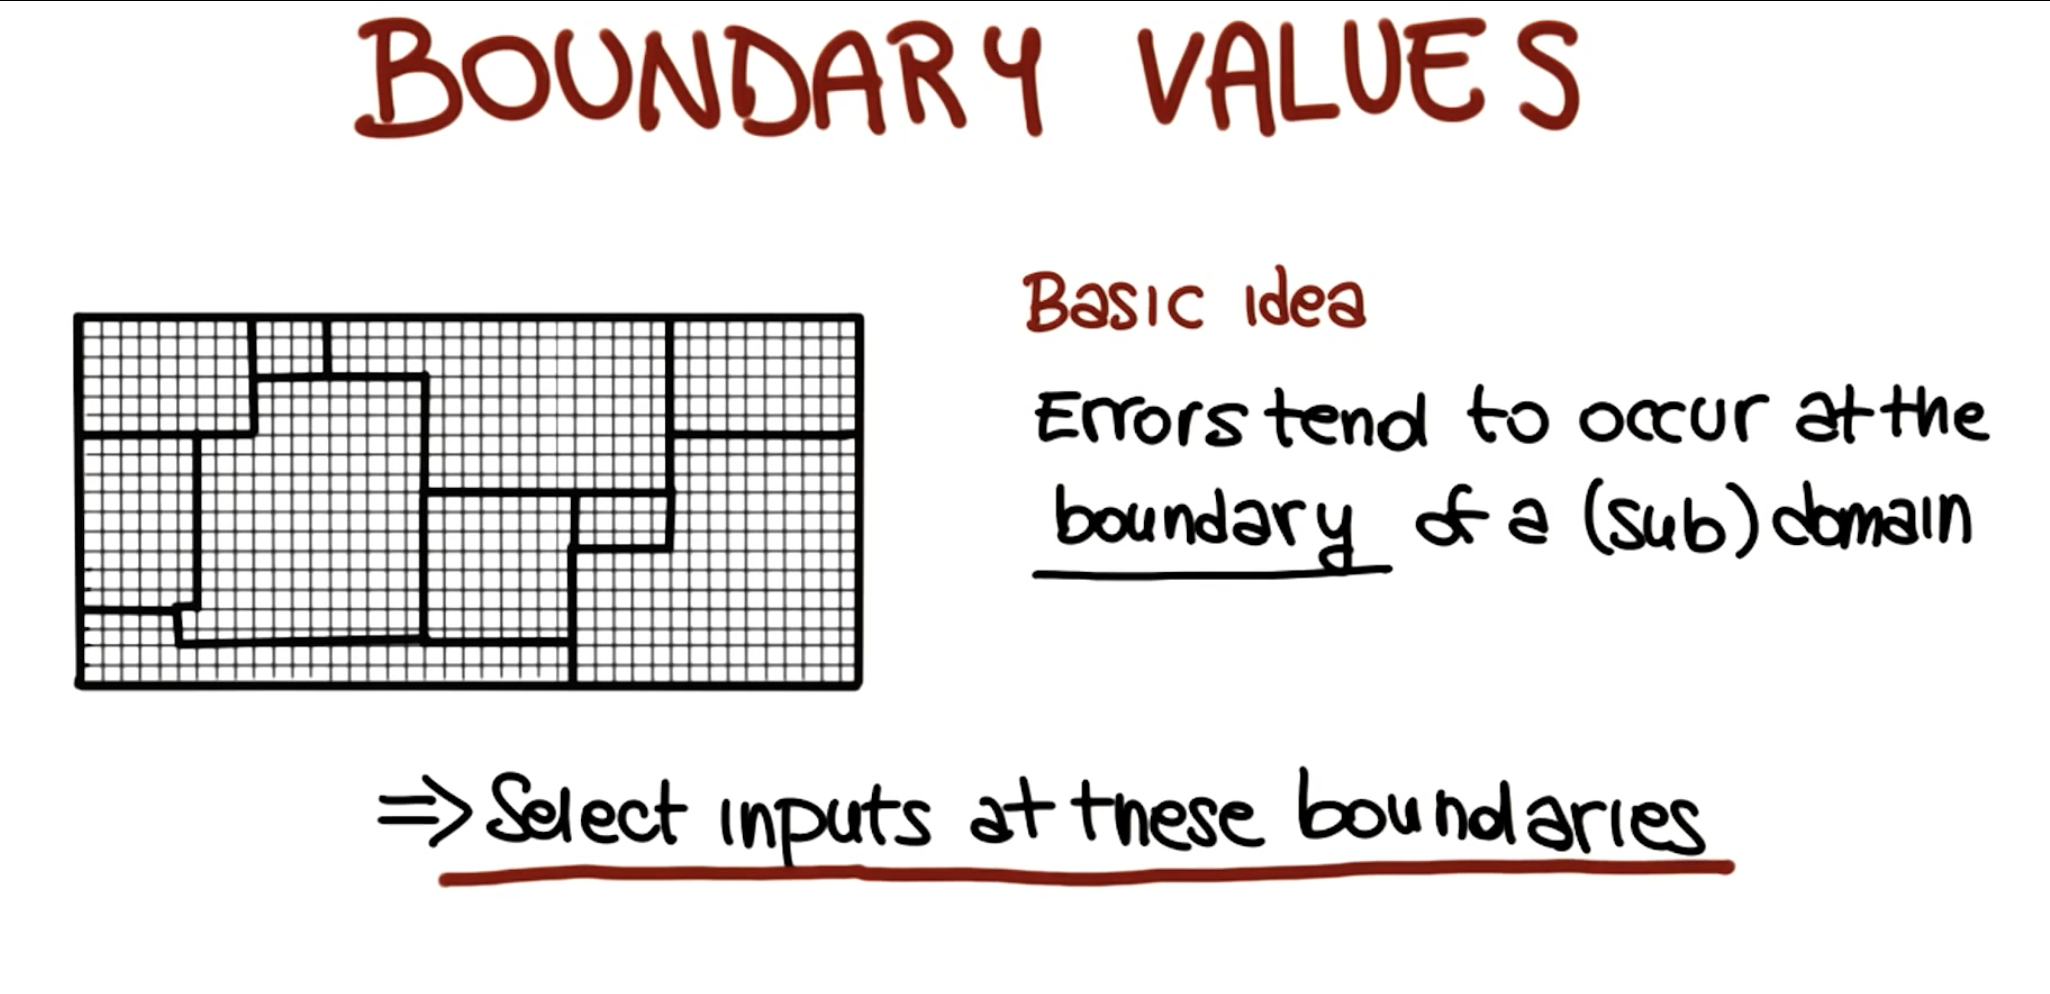 BOUNDARY VALUES
Basic idea
Errors tend to occur at the
boundary of a (sub)domain
⇒ Select inputs at these boundaries